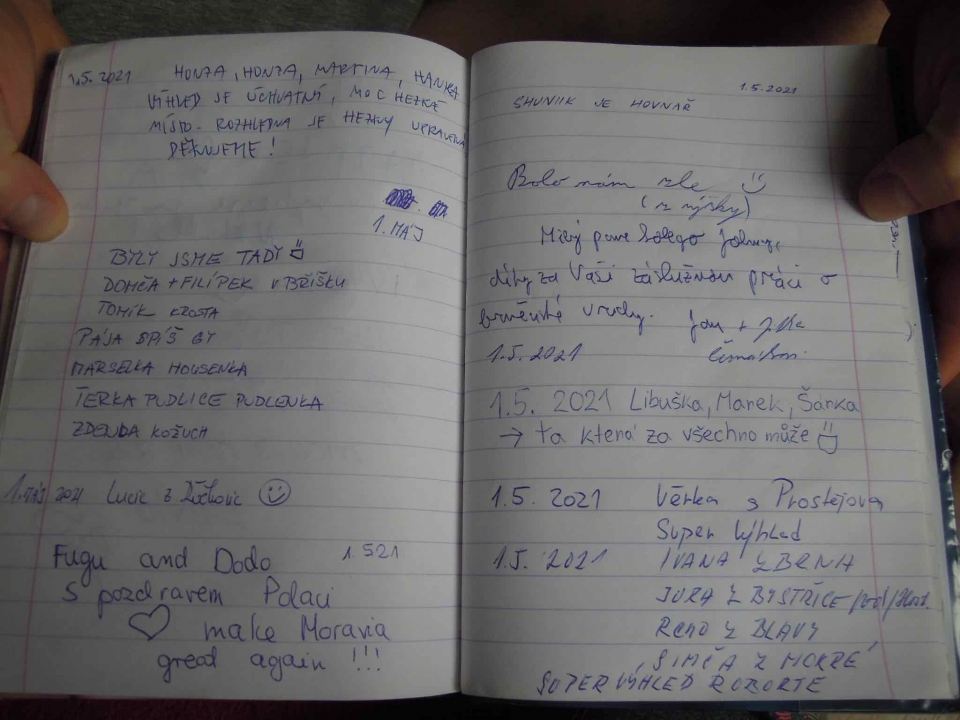 1.5.2021 HONZA, HONZA, MARTINA, HANKA
VÝHLED JE ÚCHVATNÝ, MOC HEZKÉ
MÍSTO. ROZHLEDNA JE HEZKY UPRAVENÁ
DĚKUJEME!
1. MÁJ
BYLY JSME TADY
DOMČA + FILÍPEK V BŘÍŠKU
TOMÍK KROSTA
PÁJA SPÍŠ GY
MARSELKA HOUSENKA
TERKA PUDLICE PUDLENKA
ZDENDA KOŽUCH
1. MÁJ 2021 Lucie z
Fugu and Dodo 1.521
S pozdravem Polaci
make Moravia
great again !!!
1.5.2021
SHUNIK JE HOVNÁŘ
Bolo nám zle
(z výšky)
Milý pane
díky za Vaši záslužnou práci o
Jan + Jitka
1.5.2021
1.5. 2021 Libuška, Marek, Šárka
→ ta která za všechno může
1.5. 2021 Věrka s Prostějova
Super Výhled
1.5. 2021 IVANA Z BRNA
JURA Z BYSTŘICE/pod/Host.
RENO Z BLAVY
SIMČA Z MOKRÉ
SUPER VÝHLED ROBORTE